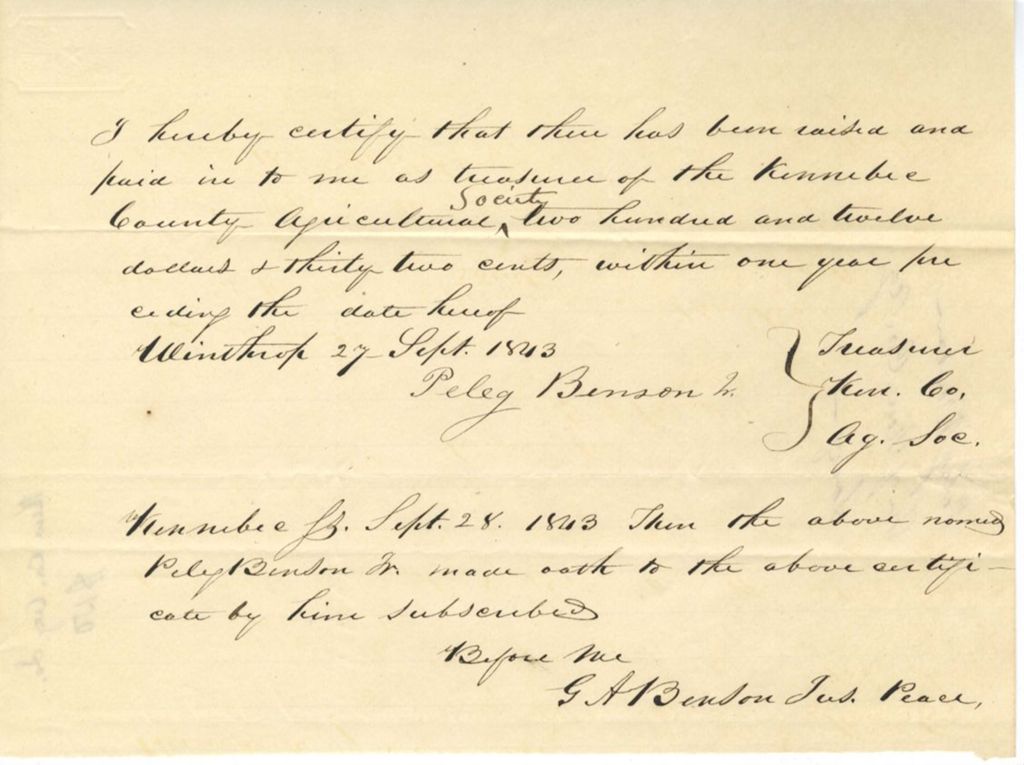 I hereby certify that there has been raised and
paid in to me as treasurer of the Kennebec
Society
County Agricultural ‸ two hundred and twelve
dollars & thirty two cents, within one year pre
ceding the date hereof
Winthrop 27 Sept. 1843
Peleg Benson Jr. } Treasurer
Ken. Co.
Ag. Soc.
Kennebec Ss. Sept. 28. 1843 Then the above named
Peleg Benson Jr. made oath to the above certifi-
cate by him subscribed
Before Me
G A Benson Jus. Peace,